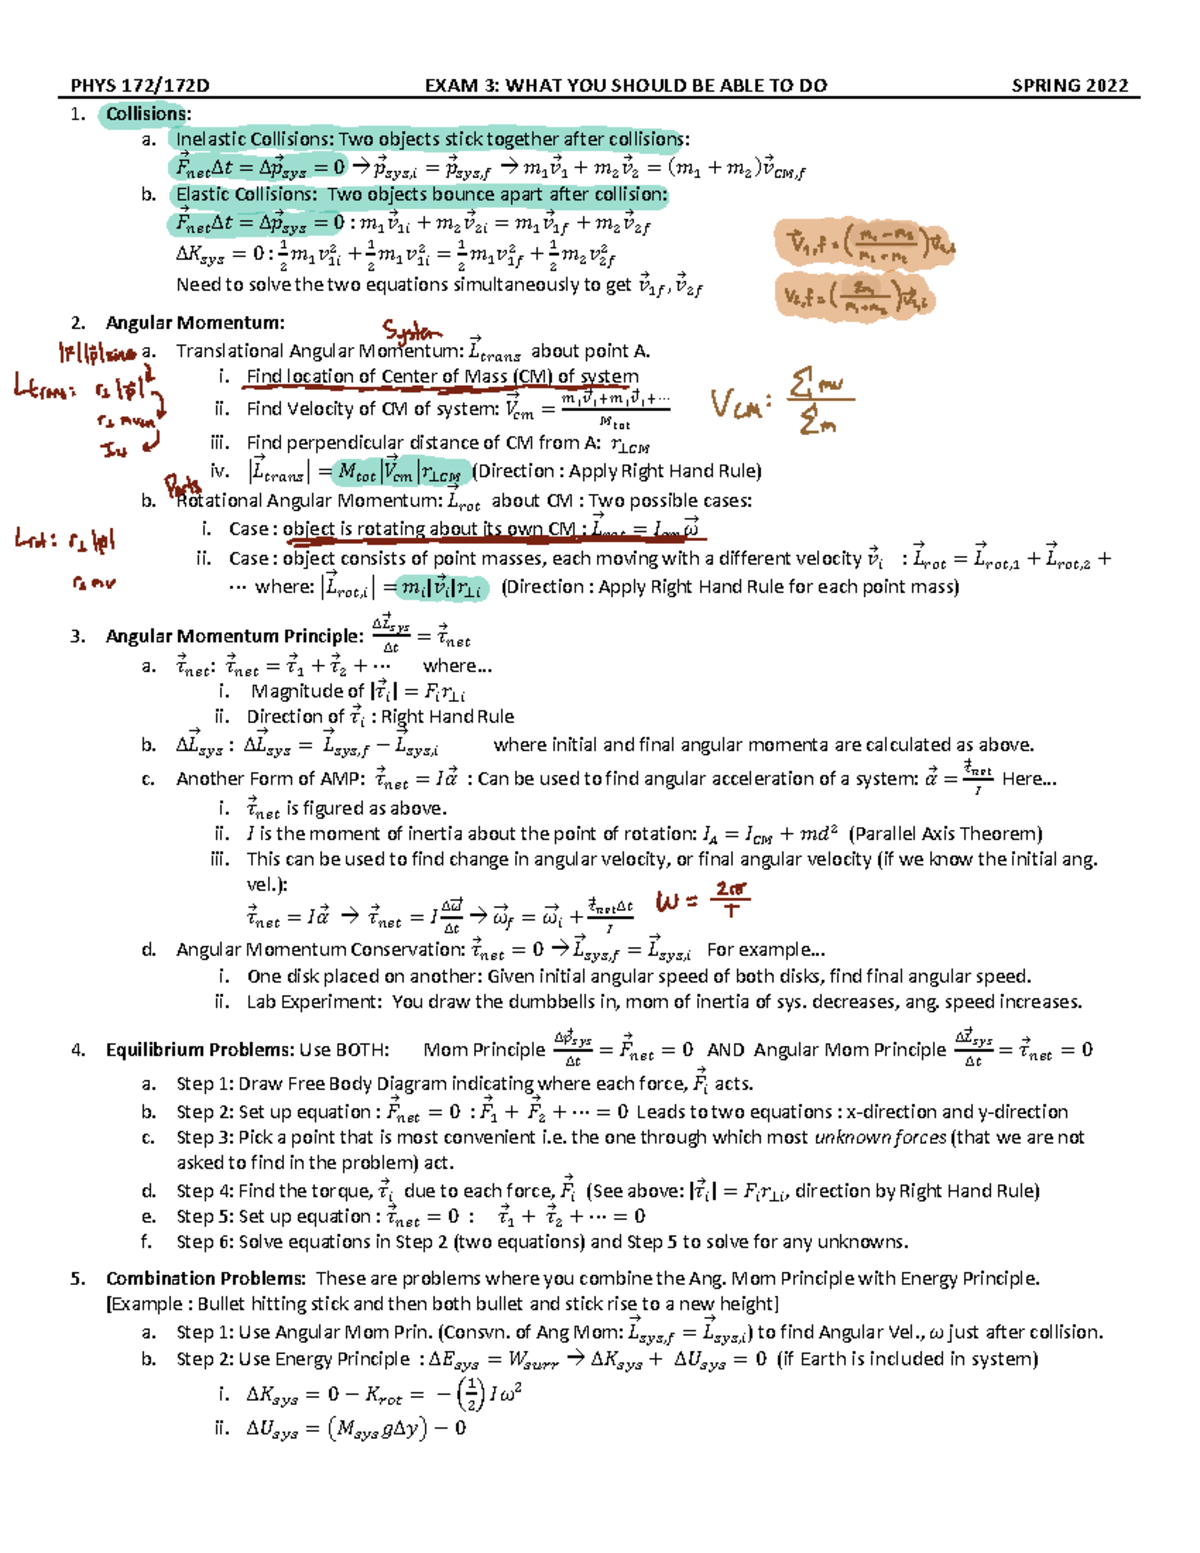 PHYS 172/172D EXAM 3: WHAT YOU SHOULD BE ABLE TO DO SPRING 2022
1. Collisions:
a. Inelastic Collisions: Two objects stick together after collisions:
F⃗_net Δt = Δp⃗_sys = 0 → p⃗_sys,i = p⃗_sys,f → m₁v⃗₁ + m₂v⃗₂ = (m₁ + m₂)v⃗_CM,f
b. Elastic Collisions: Two objects bounce apart after collision:
F⃗_net Δt = Δp⃗_sys = 0 : m₁v⃗_1i + m₂v⃗_2i = m₁v⃗_1f + m₂v⃗_2f
ΔK_sys = 0 : ½ m₁v²_1i + ½ m₁v²_1i = ½ m₁v²_1f + ½ m₂v²_2f
Need to solve the two equations simultaneously to get v⃗_1f, v⃗_2f
V⃗_1,f = (m₁ - m₂ / m₁ - m₂)
V_2,f = (2m₁ / m₁ + m₂)
2. Angular Momentum:
System
a. Translational Angular Momentum: L⃗_trans about point A.
|r||p|sinθ
i. Find location of Center of Mass (CM) of system
L_trans: r⊥|p|
ii. Find Velocity of CM of system: V⃗_cm = (m₁v⃗₁+m₁v⃗₁+⋯)/M_tot
V_CM: Σmv / Σm
iii. Find perpendicular distance of CM from A: r_⊥CM
iv. |L⃗_trans| = M_tot|V⃗_cm|r_⊥CM (Direction : Apply Right Hand Rule)
Parts
b. Rotational Angular Momentum: L⃗_rot about CM : Two possible cases:
i. Case : object is rotating about its own CM : L⃗_rot = I_cm ω⃗
L_rot: r⊥|p|
ii. Case : object consists of point masses, each moving with a different velocity v⃗_i : L⃗_rot = L⃗_rot,1 + L⃗_rot,2 +
r⊥mv
⋯ where: |L⃗_rot,i| = m_i|v⃗_i|r_⊥i (Direction : Apply Right Hand Rule for each point mass)
3. Angular Momentum Principle: ΔL⃗_sys/Δt = τ⃗_net
a. τ⃗_net: τ⃗_net = τ⃗₁ + τ⃗₂ + ⋯ where...
i. Magnitude of |τ⃗_i| = F_i r_⊥i
ii. Direction of τ⃗_i : Right Hand Rule
b. ΔL⃗_sys : ΔL⃗_sys = L⃗_sys,f − L⃗_sys,i where initial and final angular momenta are calculated as above.
c. Another Form of AMP: τ⃗_net = Iα⃗ : Can be used to find angular acceleration of a system: α⃗ = τ⃗_net/I Here...
i. τ⃗_net is figured as above.
ii. I is the moment of inertia about the point of rotation: I_A = I_CM + md² (Parallel Axis Theorem)
iii. This can be used to find change in angular velocity, or final angular velocity (if we know the initial ang.
vel.):
τ⃗_net = Iα⃗ → τ⃗_net = I Δω⃗/Δt → ω⃗_f = ω⃗_i + τ⃗_net Δt/I
ω = 2π/T
d. Angular Momentum Conservation: τ⃗_net = 0 → L⃗_sys,f = L⃗_sys,i For example...
i. One disk placed on another: Given initial angular speed of both disks, find final angular speed.
ii. Lab Experiment: You draw the dumbbells in, mom of inertia of sys. decreases, ang. speed increases.
4. Equilibrium Problems: Use BOTH: Mom Principle Δp⃗_sys/Δt = F⃗_net = 0 AND Angular Mom Principle ΔL⃗_sys/Δt = τ⃗_net = 0
a. Step 1: Draw Free Body Diagram indicating where each force, F⃗_i acts.
b. Step 2: Set up equation : F⃗_net = 0 : F⃗₁ + F⃗₂ + ⋯ = 0 Leads to two equations : x-direction and y-direction
c. Step 3: Pick a point that is most convenient i.e. the one through which most unknown forces (that we are not
asked to find in the problem) act.
d. Step 4: Find the torque, τ⃗_i due to each force, F⃗_i (See above: |τ⃗_i| = F_i r_⊥i, direction by Right Hand Rule)
e. Step 5: Set up equation : τ⃗_net = 0 : τ⃗₁ + τ⃗₂ + ⋯ = 0
f. Step 6: Solve equations in Step 2 (two equations) and Step 5 to solve for any unknowns.
5. Combination Problems: These are problems where you combine the Ang. Mom Principle with Energy Principle.
[Example : Bullet hitting stick and then both bullet and stick rise to a new height]
a. Step 1: Use Angular Mom Prin. (Consvn. of Ang Mom: L⃗_sys,f = L⃗_sys,i) to find Angular Vel., ω just after collision.
b. Step 2: Use Energy Principle : ΔE_sys = W_surr → ΔK_sys + ΔU_sys = 0 (if Earth is included in system)
i. ΔK_sys = 0 − K_rot = −(1/2)Iω²
ii. ΔU_sys = (M_sys gΔy) − 0